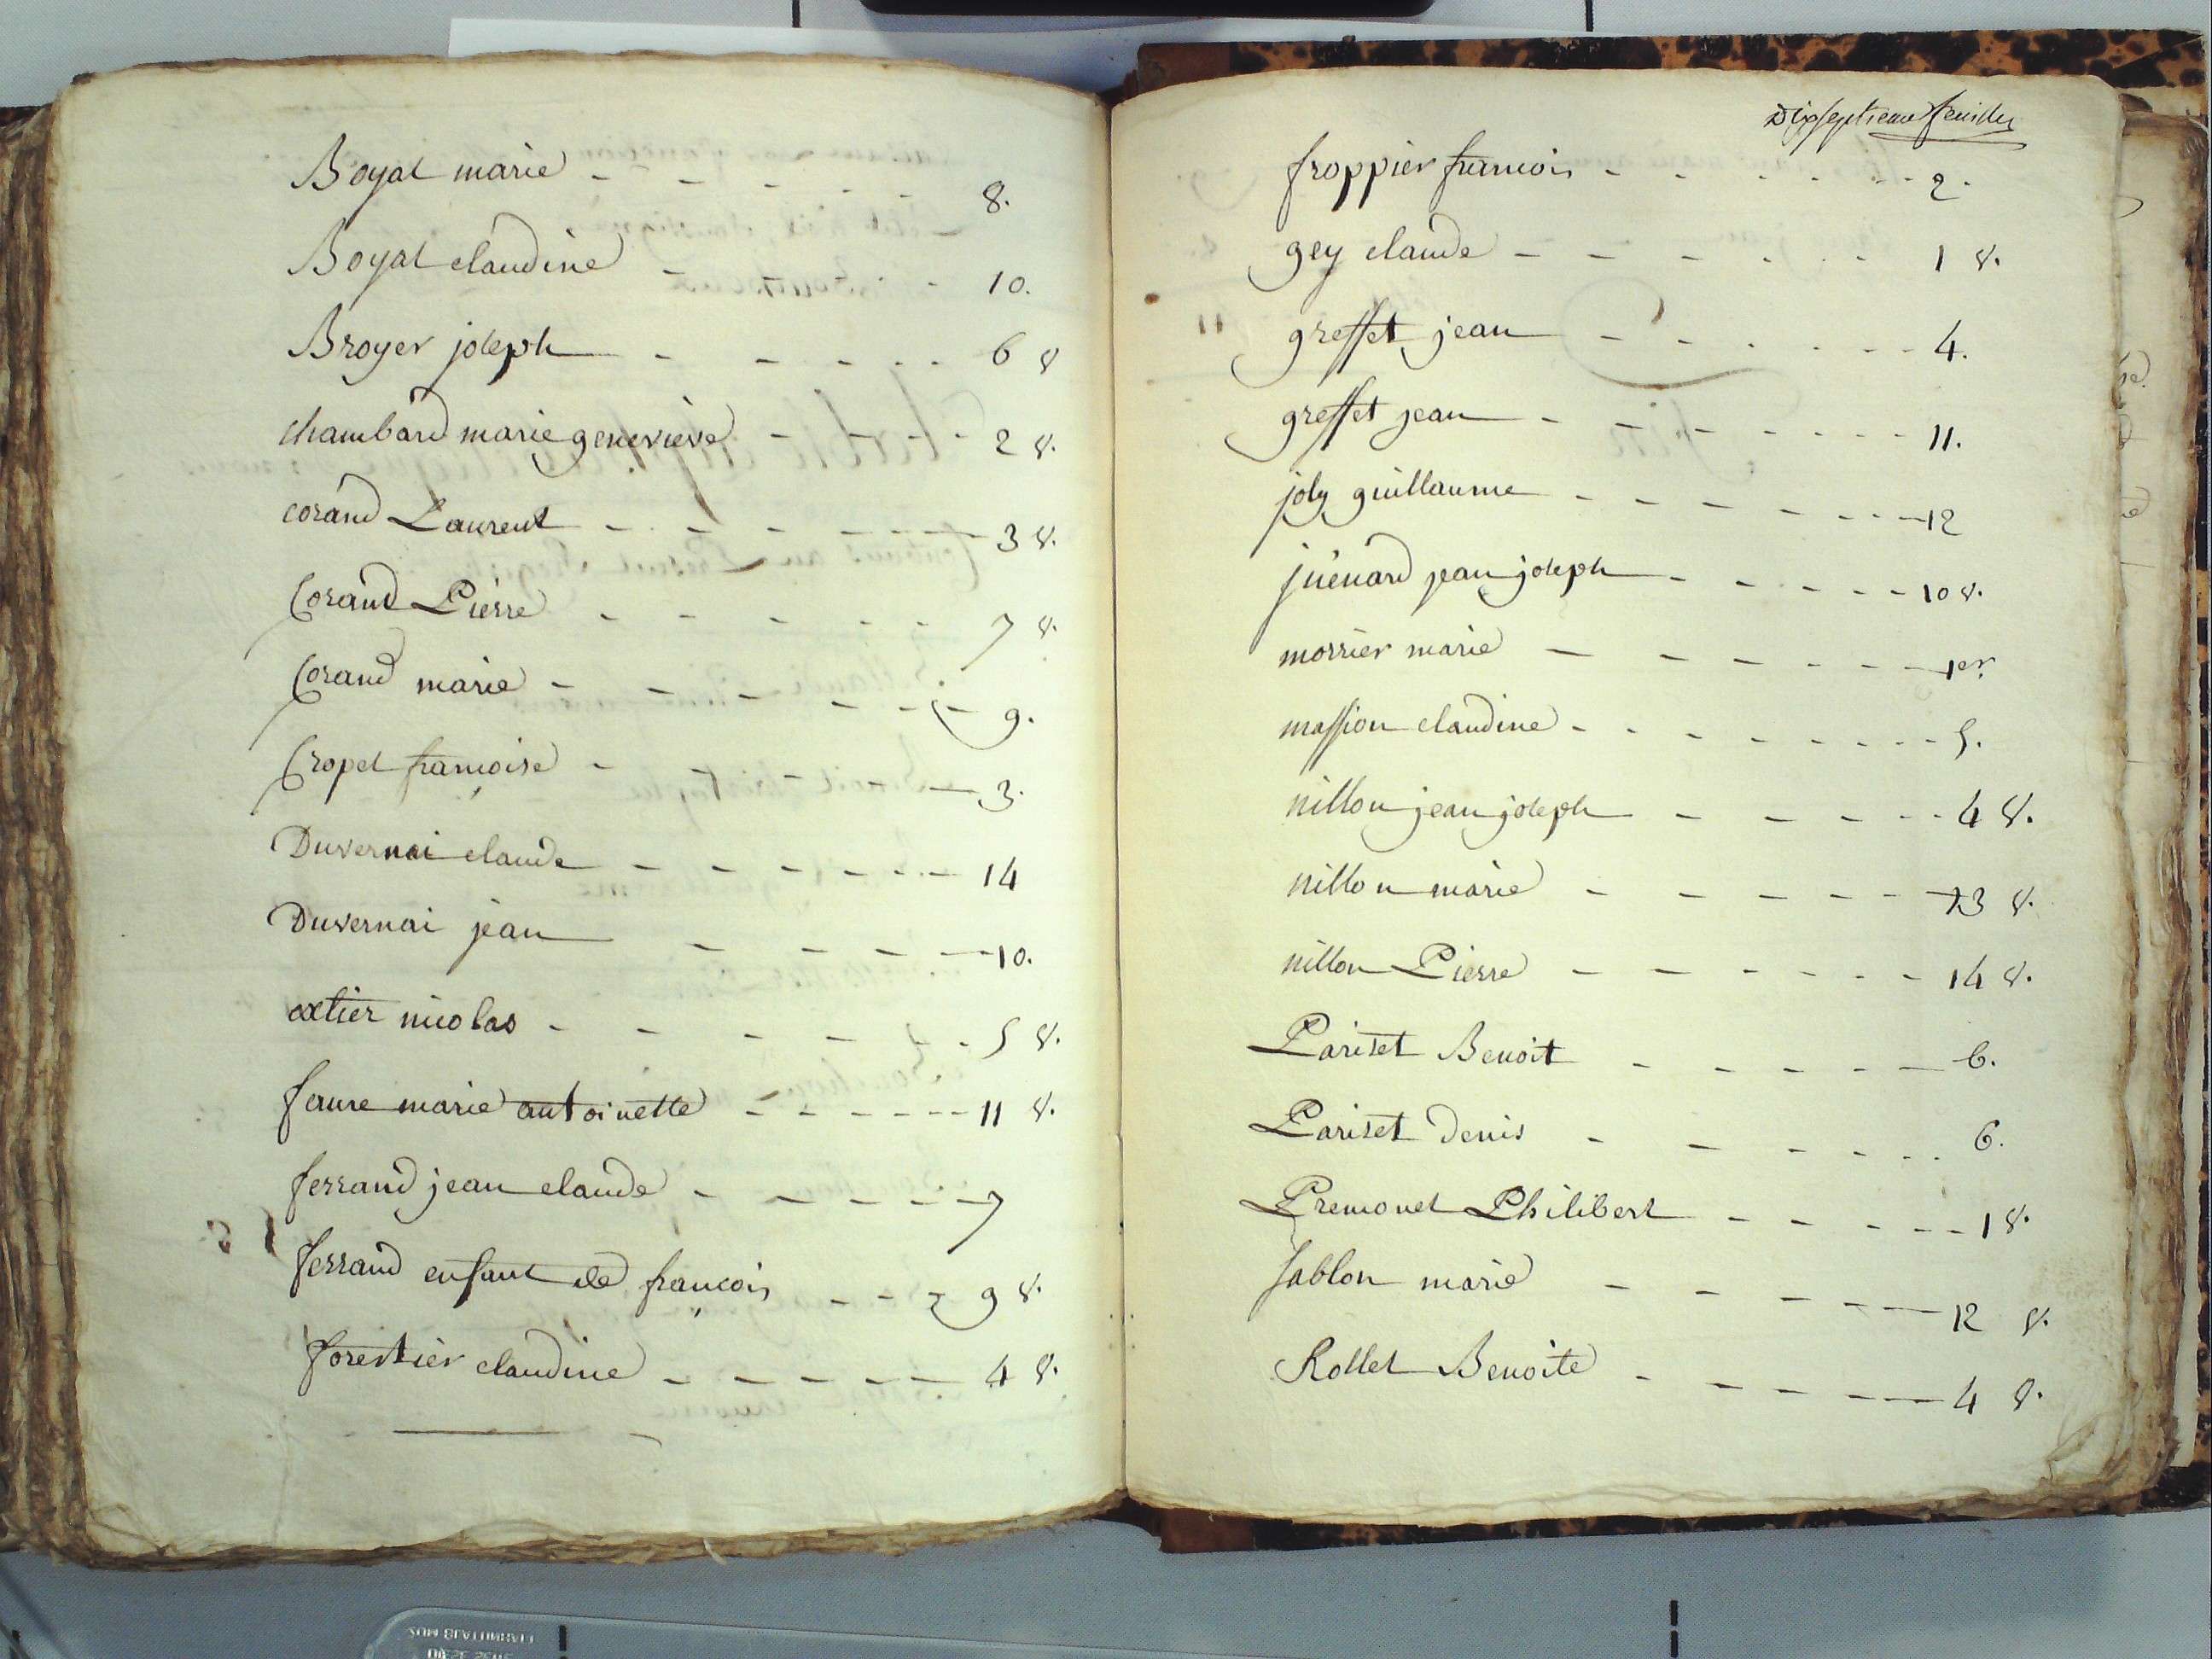 Boyat marie - - - - - - 8.
Boyat claudine - - 10.
Broyer joseph - - - - - 6 v.
chambard marie genevieve - - - - 2 v.
corand Laurent - - - - - 3 v.
Corand Pierre - - - - - 7 v.
Corand marie - - - - - 9.
Cropet françoise - - - - 3.
Duvernai claude - - - - - - 14
Duvernai jean - - - - 10.
extier nicolas - - - - - - 5 v.
faure marie antoinette - - - - - - 11 v.
ferrand jean claude - - - - - 7
ferrand enfant de françois - - - 9 v.
forestier claudine - - - - - 4 v.
Dixseptieme feuillet
froppier francois - - - - - - 2.
gey claude - - - - - - 1 v.
greffet jean - - - - - - 4.
greffet jean - - - - - - - 11.
joly guillaume - - - - - - - 12
juénard jean joseph - - - - - 10 v.
morrier marie - - - - - - 1er.
massion claudine - - - - - - - 5.
nillon jean joseph - - - - - 4 v.
nillon marie - - - - - - 13 v.
nillon Pierre - - - - - - 14 v.
Pariset Benoit - - - - - 6.
Pariset denis - - - - - - 6.
Premonet Philibert - - - - - 1 v.
Sablon marie - - - - - 12 v.
Rollet Benoite - - - - - 4 v.